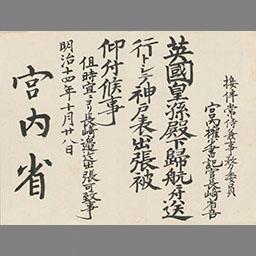 接伴常侍兼事務委員
宮内権少書記官長崎省吾
英國皇孫殿下歸航舟送
行トシテ神戸表出張被
仰付候事
但時宜ニヨリ長崎邉迄出張可致事
明治十四年十月廿八日
宮内省